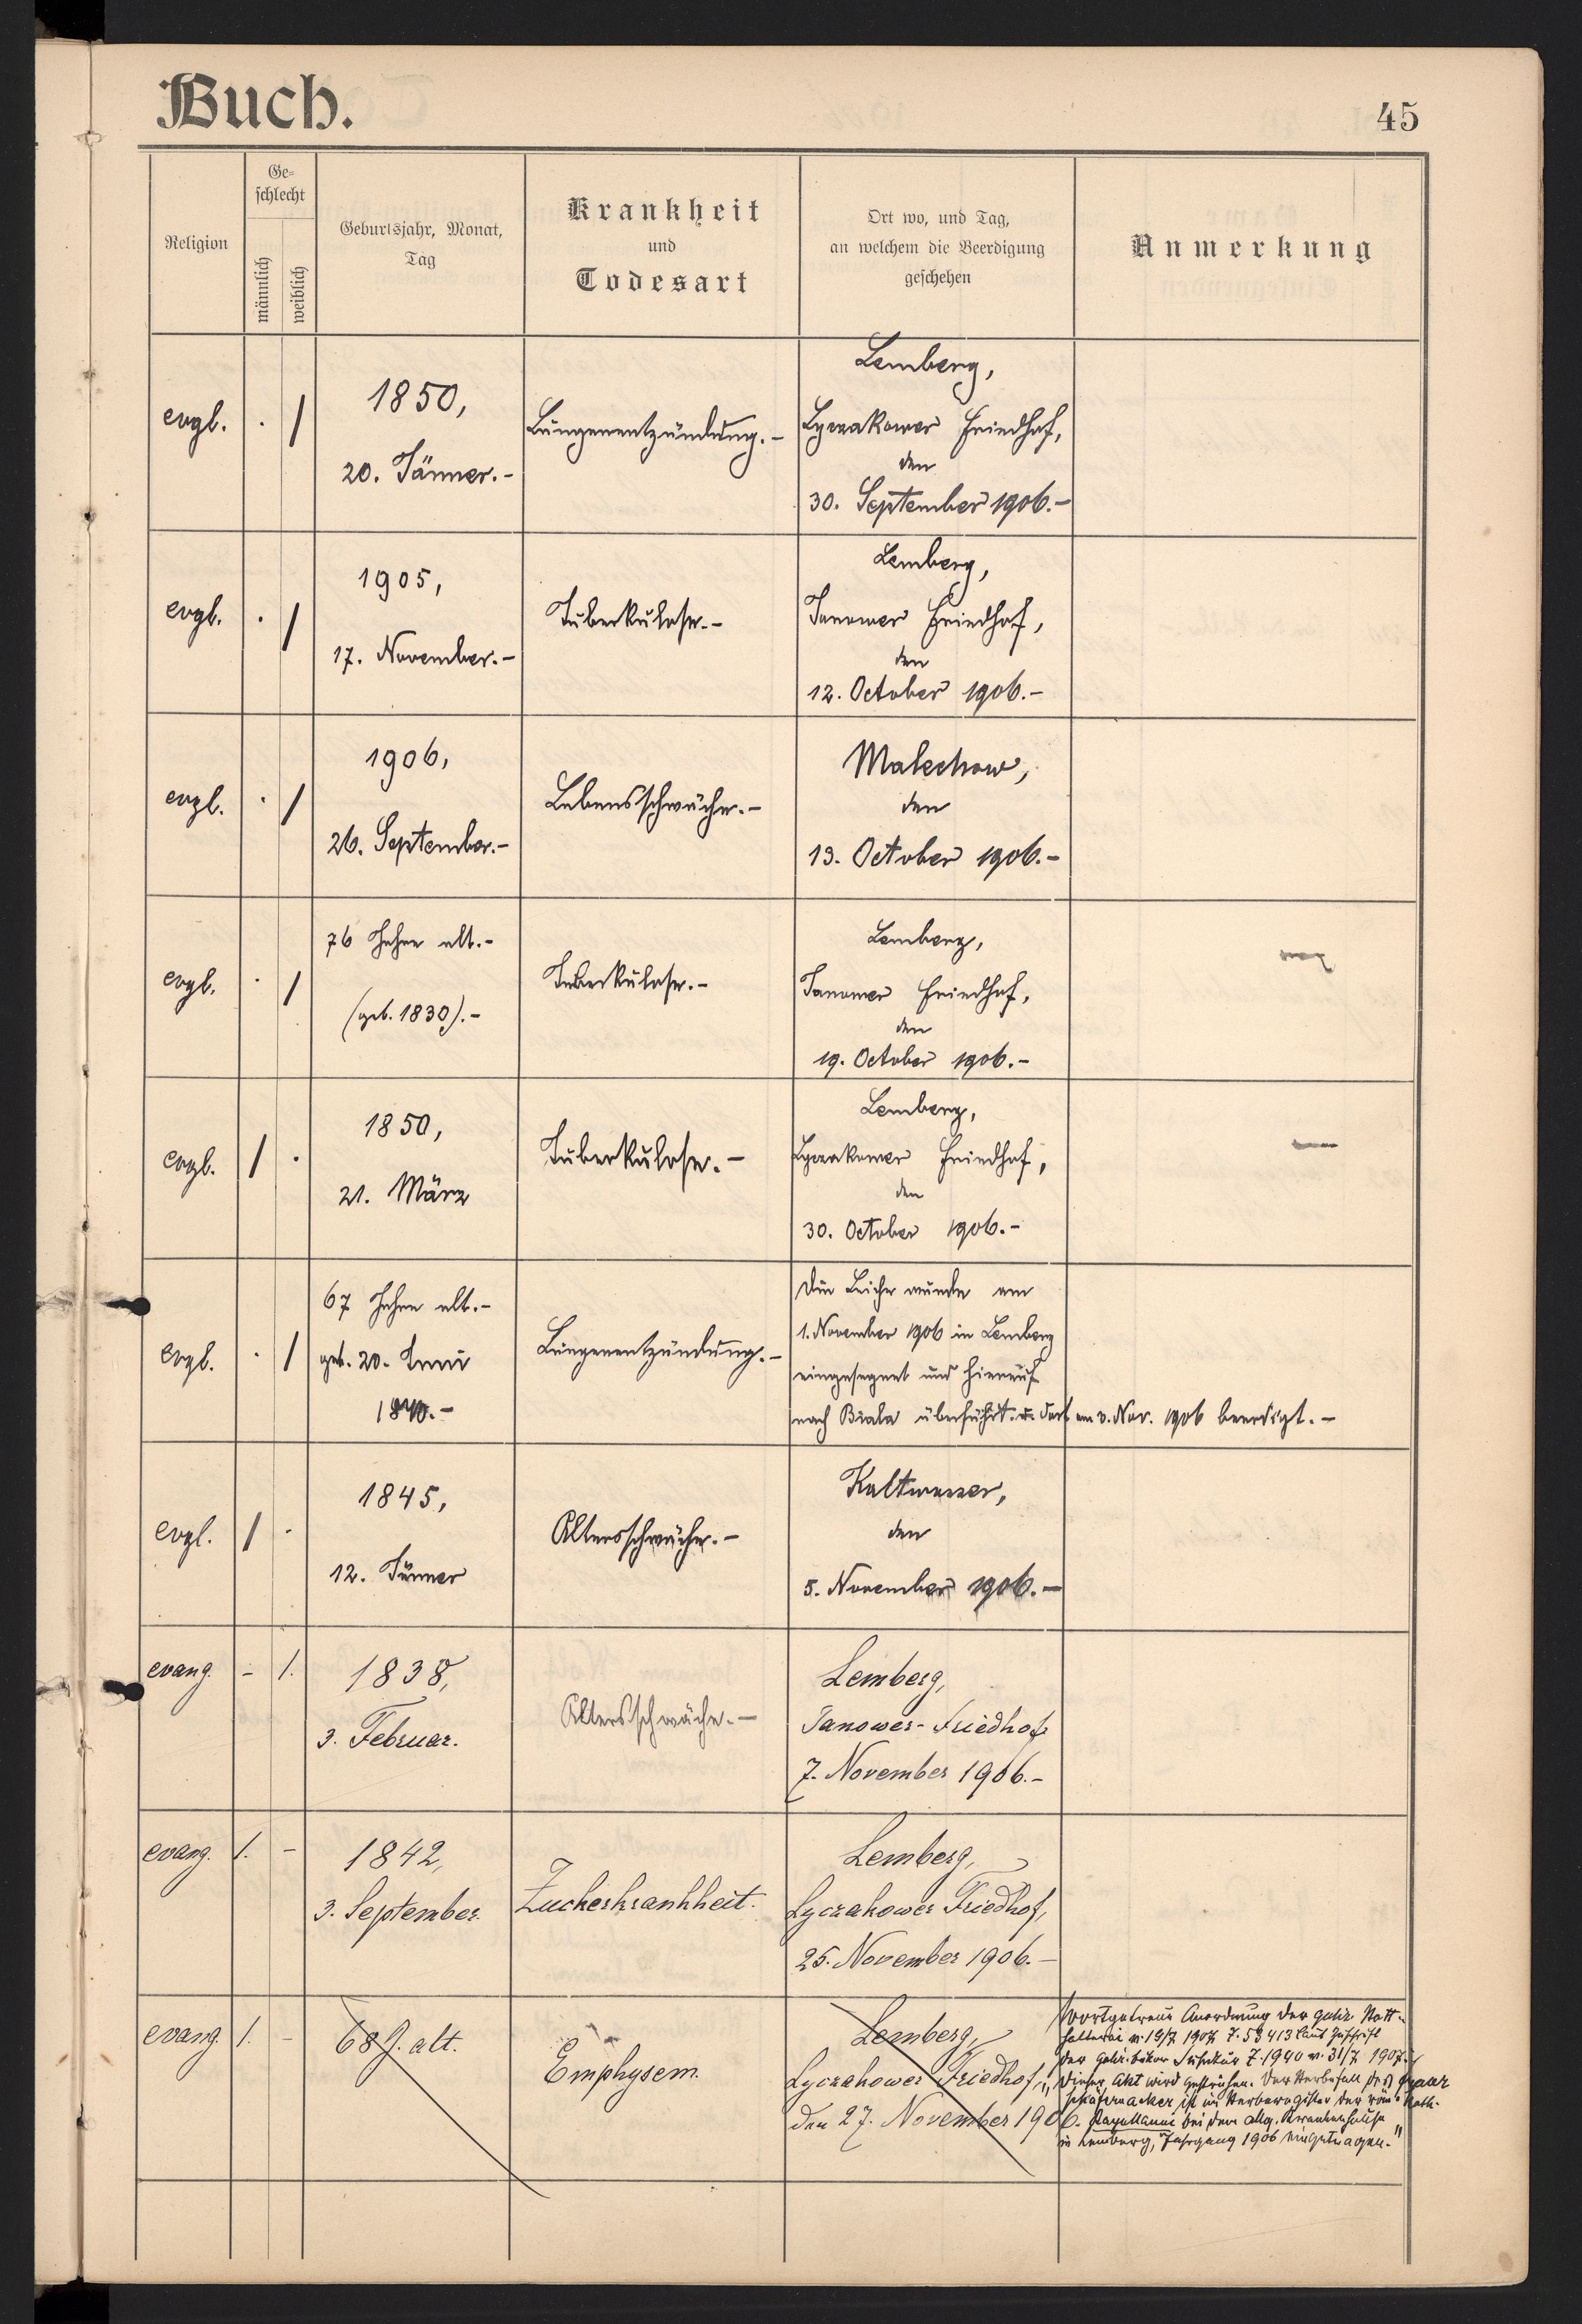 Buch.
45
Religion
Ge-
schlecht
männlich
weiblich
Geburtsjahr, Monat,
Tag
Krankheit
und
Todesart
Ort wo, und Tag,
an welchem die Beerdigung
geschehen
Anmerkung
evgl. . /
1850,
20. Jänner.-
Lungenentzündung.-
Lemberg,
Lyczakower Friedhof,
den
30. September 1906.-
evgl. . /
1905,
17. November.-
Tuberkulose.-
Lemberg,
Janower Friedhof,
den
12. October 1906.-
evgl. . /
1906,
26. September.-
Lebensschwäche.-
Malechow,
den
13. October 1906.-
evgl. . /
76 Jahre alt.-
(geb. 1830).-
Tuberkulose.-
Lemberg,
Janower Friedhof,
den
19. October 1906.-
evgl. / .
1850,
21. März
Tuberkulose.-
Lemberg,
Lyczakower Friedhof,
den
30. October 1906.-
evgl. . /
67 Jahre alt.-
geb. 20. Juni
Lungenentzündung.-
Die Leiche wurde am
1. November 1906 in Lemberg
eingesegnet und hierauf
nach Biala überführt u. dort am 3. Nov. 1906 beerdigt.-
evgl. / .
1845,
12. Jänner
Altersschwäche.-
Kaltwasser,
den
5. November 1906.-
evang. - /.
1838,
3. Februar.
Altersschwäche.-
Lemberg,
Janower-Friedhof
7. November 1906.-
evang. /. -
1842,
3. September.
Zuckerkrankheit.
Lemberg,
Lyczakower Friedhof,
25. November 1906.-
evang. /. -
68 J. alt.
Emphysem.
Lemberg,
Lyczakower Friedhof,
den 27. November 1906.
Anordnung der galiz. Statt-
halterei v. 19/7 1907 Z. 58413 laut Zuschrift
der Z. 1940 v. 31/7 1907.
"Dieser Akt wird gestrichen. Der Sterbefall des Franz
Schäfernacker ist im Sterberegister der röm. kath.
bei dem allg. Krankenhause
in Lemberg, Jahrgang 1906 eingetragen."